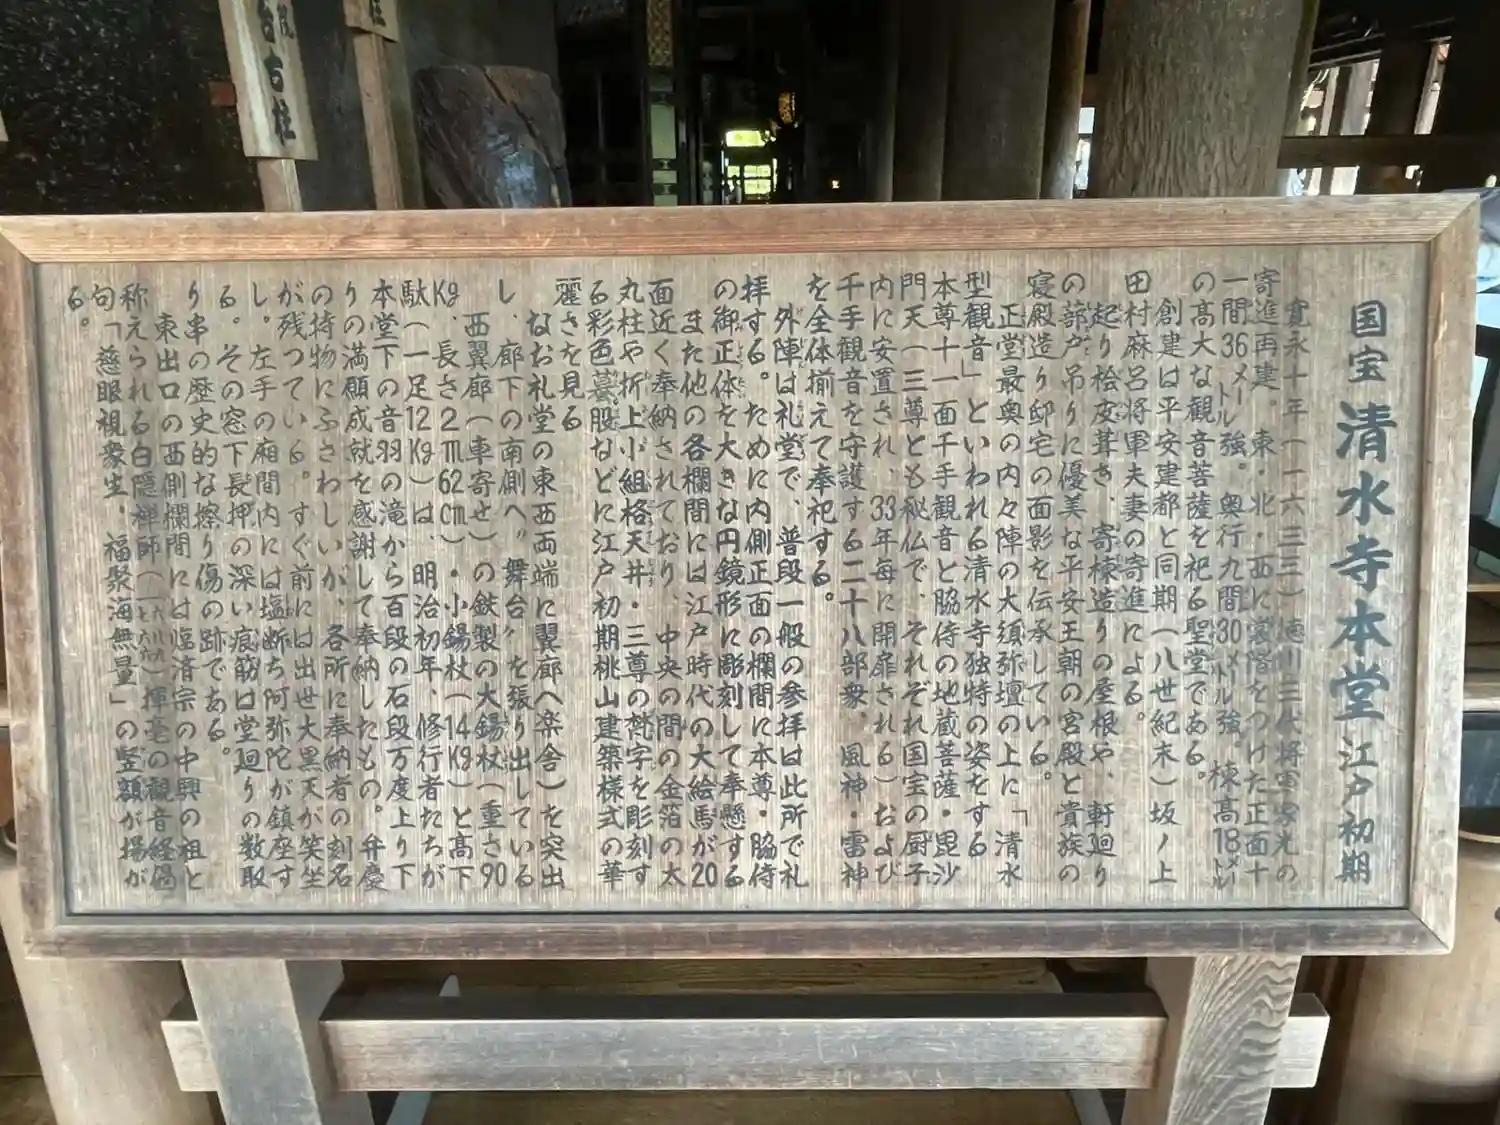 国宝 清水寺本堂 江戸初期
寛永十年（一六三三）徳川三代将軍家光の
寄進再建。東・北・西に裳階をつけた正面十
一間36メートル強。奥行九間30メートル強。棟高18メートル
の高大な観音菩薩を祀る聖堂である。
創建は平安建都と同期（八世紀末）坂ノ上
田村麻呂将軍夫妻の寄進による。
起り桧皮葺き、寄棟造りの屋根や、軒廻り
の蔀戸吊りに優美な平安王朝の宮殿と貴族の
寝殿造り邸宅の面影を伝承している。
正堂最奥の内々陣の大須弥壇の上に「清水
型観音」といわれる清水寺独特の姿をする
本尊十一面千手観音と脇侍の地蔵菩薩・毘沙
門天（三尊とも秘仏で、それぞれ国宝の厨子
内に安置され、33年毎に開扉される）および
千手観音を守護する二十八部衆。風神・雷神
を全体揃えて奉祀する。
外陣は礼堂で、普段一般の参拝は此所で礼
拝する。ために内側正面の欄間に本尊・脇侍
の御正体を大きな円鏡形に彫刻して奉懸する
また他の各欄間には江戸時代の大絵馬が20
面近く奉納されており、中央の間の金箔の太
丸柱や折上小組格天井・三尊の梵字を彫刻す
る彩色蟇股などに江戸初期桃山建築様式の華
麗さを見る
なお礼堂の東西両端に翼廊へ楽舎）を突出
し、廊下の南側へ〝舞台〟を張り出している
西翼廊（車寄せ）の鉄製の大錫杖（重さ90
Kg、長さ2m62cm）・小錫杖（14Kg）と高下
駄（一足12Kg）は、明治初年、修行者たちが
本堂下の音羽の滝から百段の石段万度上り下
りの満願成就を感謝して奉納したもの。弁慶
の持物にふさわしいが、各所に奉納者の刻名
が残っている。すぐ前には出世大黒天が笑坐
し。左手の廂間内には塩断ち阿弥陀が鎮座す
る。その窓下長押の深い痕筋は堂廻りの数取
り串の歴史的な擦り傷の跡である。
東出口の西側欄間には臨済宗の中興の祖と
称えられる白隠禅師 揮毫の観音経偈
句「慈眼視衆生、福聚海無量」の竪額が揚が
る。
台古柱
柱